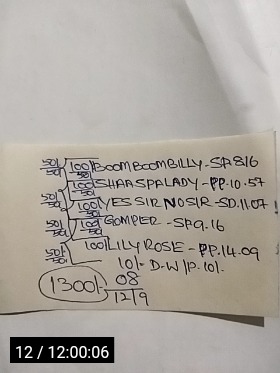 50/50 100/50 BOOMBOOMBILLY - SP.8/6
100/50 SHAASPALADY - PP.10.57
50/50 100/50 YES SIR NO SIR - SD.11.07
50/50 100/50 GOMPER - SP.9.16
50/50 100/ LILY ROSE - PP.14.09
10/- D-W/P.10/-
1300/- 08
12/9
12 / 12:00:06